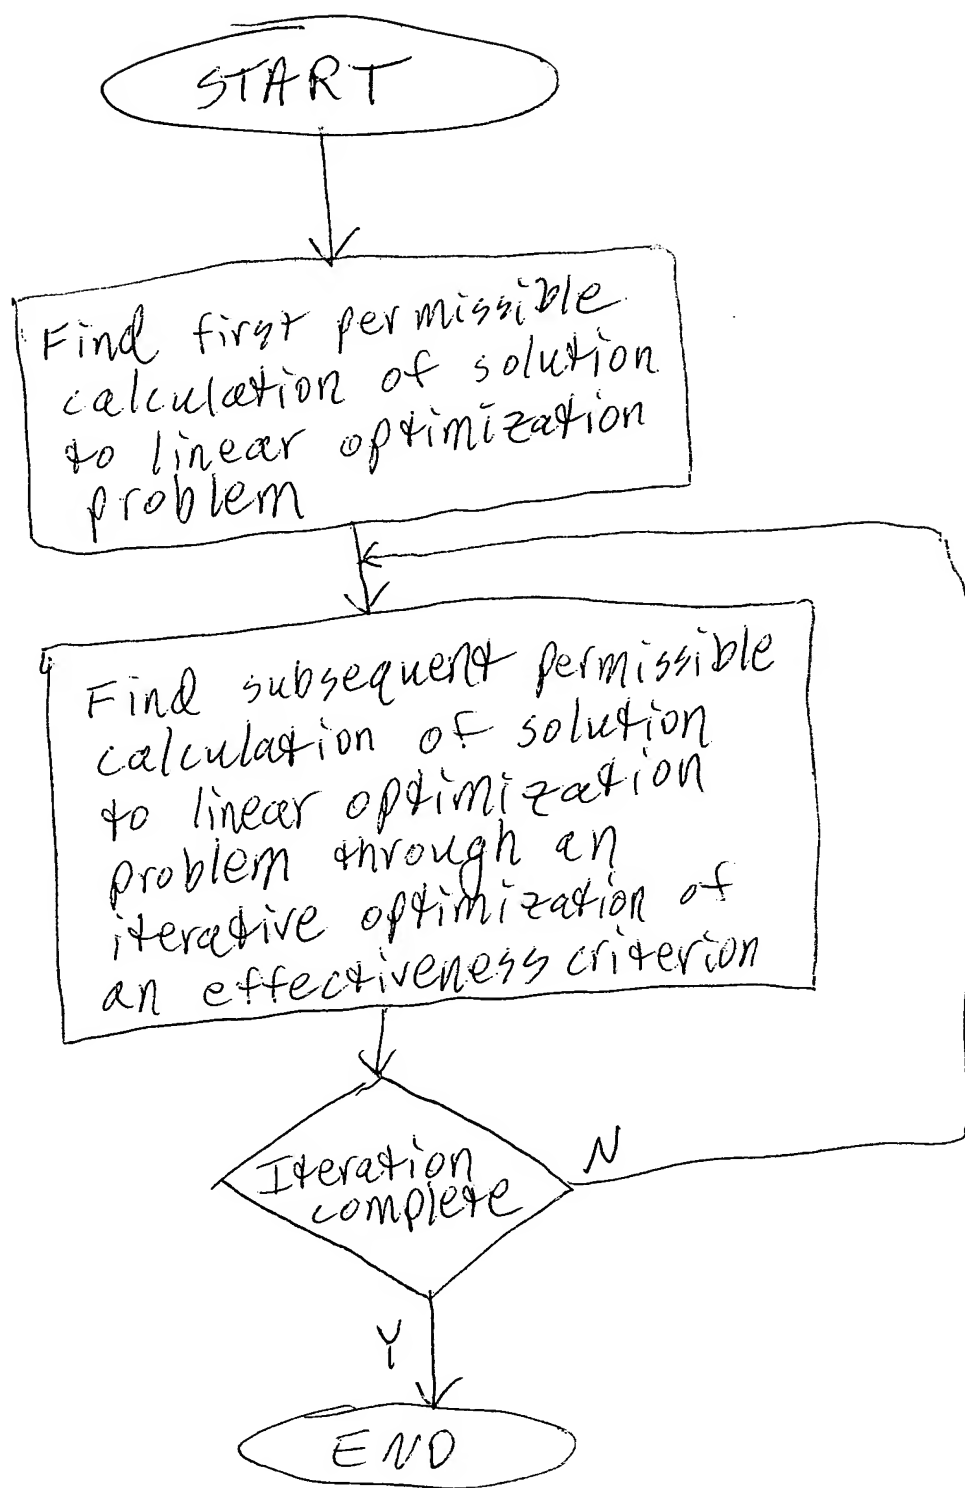 START
Find first permissible
calculation of solution
to linear optimization
problem
Find subsequent permissible
calculation of solution
to linear optimization
problem through an
iterative optimization of
an effectiveness criterion
Iteration
complete
N
Y
END